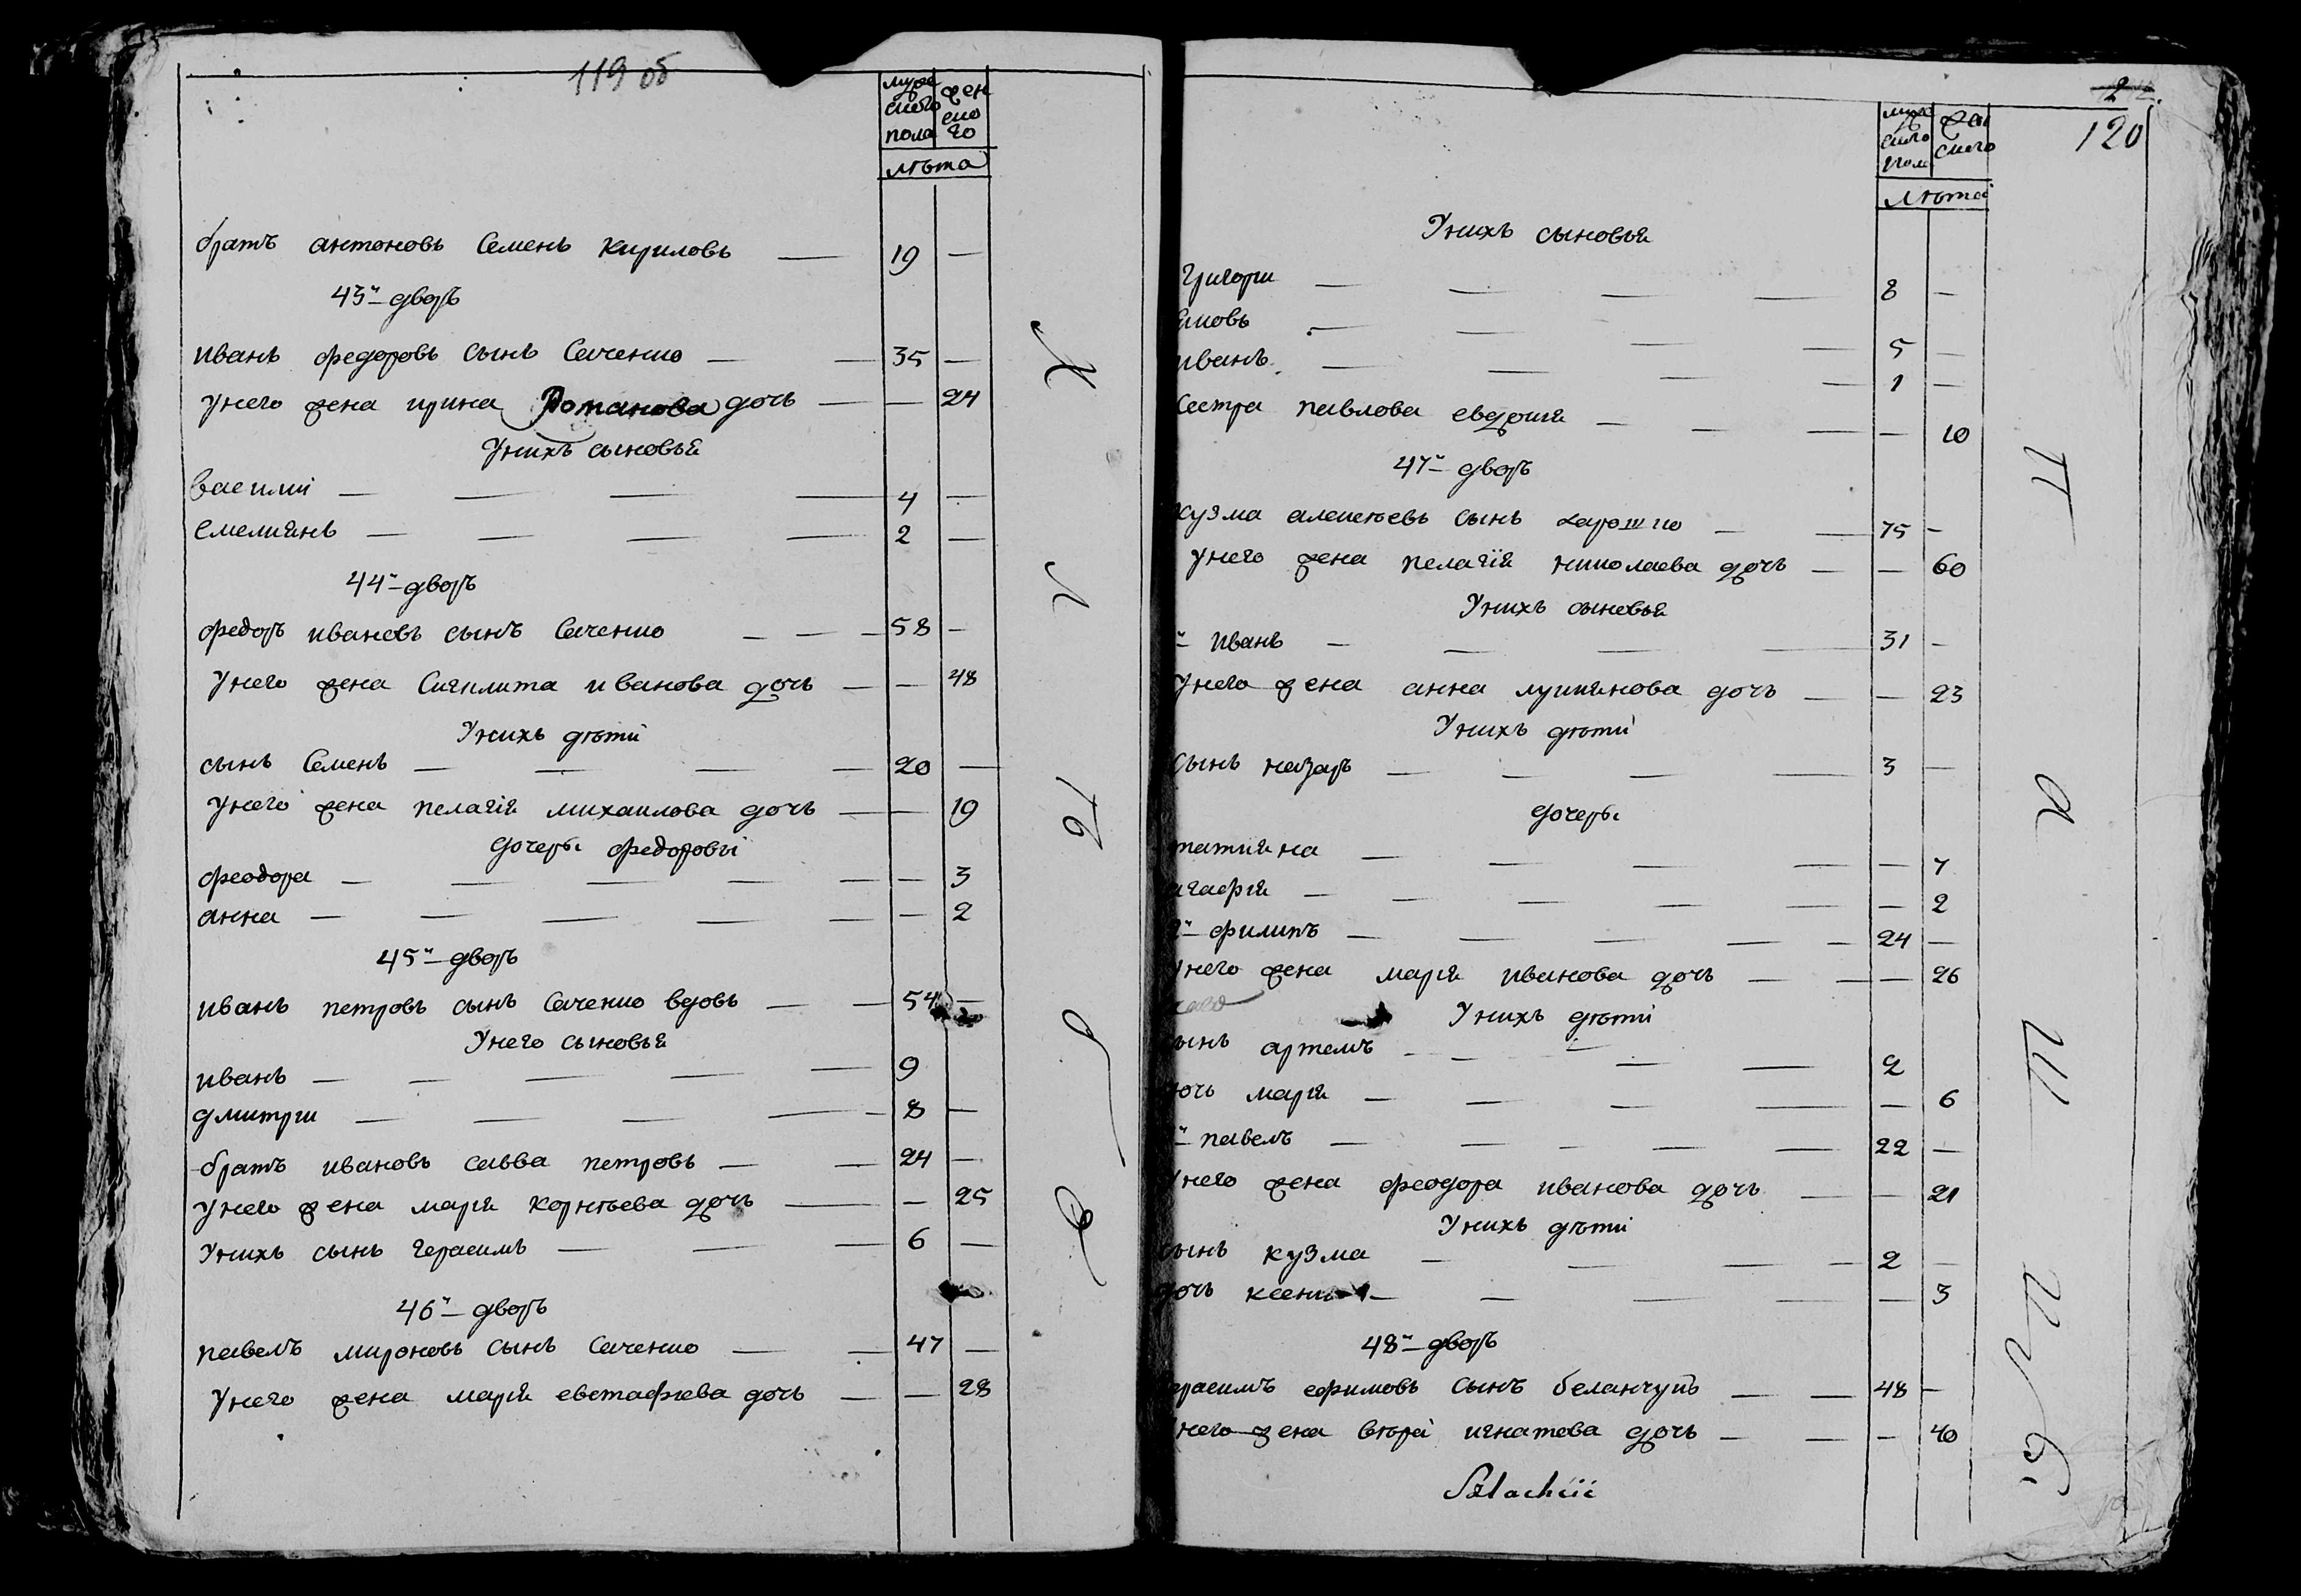 119 об
мужескаго пола
женскаго
лѣта
братъ антоновъ Семенъ Кириловъ — 19 —
43й дворъ
иванъ федоровъ сынъ Саченко — — 35 —
унего жена ирина Романова дочь — — 24
Унихъ сыновья
василий — — — — 4 —
емелиянъ — — — — 2 —
44й дворъ
федоръ ивановъ сынъ Саченко — — — 58 —
унего жена Сиклита иванова дочь — — 48
Унихъ дѣти
сынъ Семенъ — — — — 20 —
унего жена пелагія михаилова дочь — — 19
дочеры федоровы
феодора — — — — — — 3
анна — — — — — — 2
45й дворъ
иванъ петровъ сынъ Саченко вдовъ — — 54 —
Унего сыновья
иванъ — — — — — 9
дмитри — — — — — 8 —
братъ ивановъ савва петровъ — — 24 —
унего жена марія корнѣева дочь — — 25
Унихъ сынъ герасимъ — — — 6 —
46й дворъ
павелъ мироновъ сынъ Саченко — — 47 —
унего жена марія евстафиева дочь — — 28
120
мужескаго пола
женскаго
лѣта
Унихъ сыновья
Григори — — — — 8 —
яковъ — — — — 5 —
иванъ — — — — 1 —
Сестра павлова евдокия — — — — 10
47й дворъ
кузма алексѣевъ сынъ — — 75 —
унего жена пелагія николаева дочь — — 60
Унихъ сыновья
й иванъ — — — — 31 —
унего жена анна лукиянова дочь — — 23
Унихъ дѣти
Сынъ назаръ — — — — 3 —
дочеры
татияна — — — — — 7
агафія — — — — — — 2
2й филипъ — — — — — 24 —
унего жена марія иванова дочь — — — 26
Унихъ дѣти
сынъ артемъ — — — — 2
дочь марія — — — — — 6
й павелъ — — — — — 22 —
унего жена феодора иванова дочь — — 21
Унихъ дѣти
сынъ кузма — — — — 2 —
дочь ксения — — — — — 3
48й дворъ
герасимъ ефимовъ сынъ беланчукъ — — 48 —
унего жена вѣра игнатова дочь — — — 40